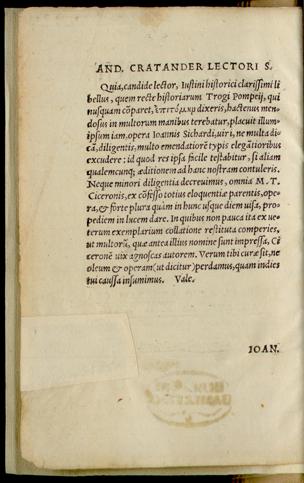 AND. CRATANDER LECTORI S.
Quia, candide lector, Iustini historici clarissimi li
bellus, quem recte historiarum Trogi Pompeij, qui
nusquam cōparet, ἐπιτόμην dixeris, hactenus men-
dosus in multorum manibus terebatur, placuit illum
ipsum iam, opera Ioannis Sichardi, uiri, ne multa di
cā, diligentis, multo emendatiorē typis elegātioribus
excudere: id quod res ipsa facile testabitur, si aliam
qualemcunq; æditionem ad hanc nostram contuleris.
Neque minori diligentia decreuimus, omnia M. T.
Ciceronis, ex cōfesso totius eloquentiæ parentis, ope-
ra, & forte plura quàm in hunc usque diem uisa, pro-
pediem in lucem dare. In quibus non pauca ita ex ue-
terum exemplarium collatione restituta comperies,
ut multorū, quæ antea illius nomine sunt impressa, Ci
ceronē uix agnoscas autorem. Verum tibi curæ sit, ne
oleum & operam (ut dicitur) perdamus, quam indies
tui caussa insumimus. Vale.
IOAN.